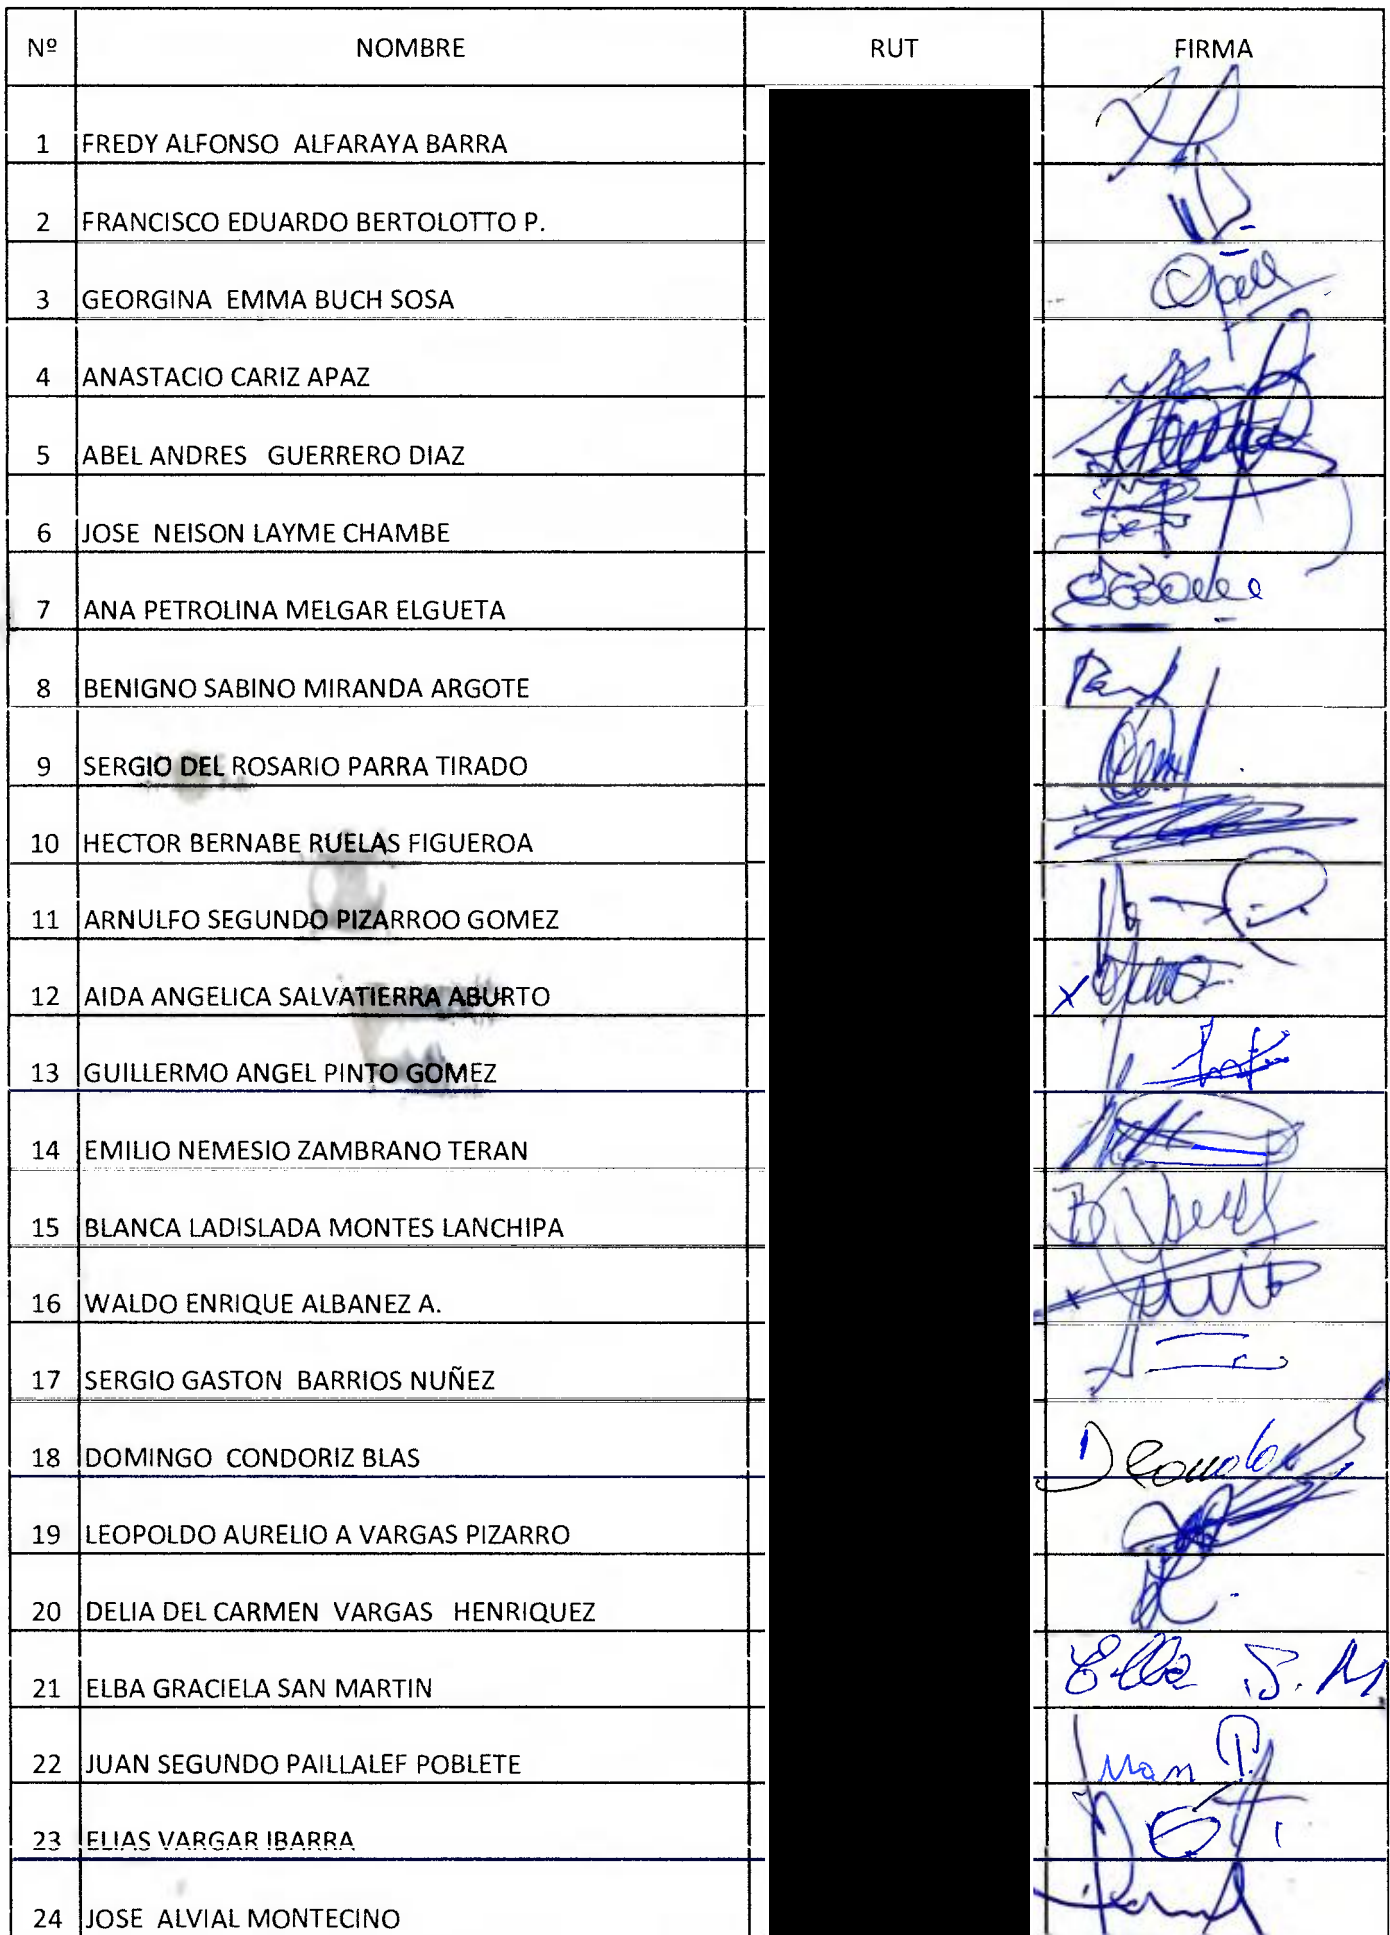 Nº NOMBRE RUT FIRMA
1 FREDY ALFONSO ALFARAYA BARRA
2 FRANCISCO EDUARDO BERTOLOTTO P.
3 GEORGINA EMMA BUCH SOSA
4 ANASTACIO CARIZ APAZ
5 ABEL ANDRES GUERRERO DIAZ
6 JOSE NEISON LAYME CHAMBE
7 ANA PETROLINA MELGAR ELGUETA
8 BENIGNO SABINO MIRANDA ARGOTE
9 SERGIO DEL ROSARIO PARRA TIRADO
10 HECTOR BERNABE RUELAS FIGUEROA
11 ARNULFO SEGUNDO PIZARROO GOMEZ
12 AIDA ANGELICA SALVATIERRA ABURTO
13 GUILLERMO ANGEL PINTO GOMEZ
14 EMILIO NEMESIO ZAMBRANO TERAN
15 BLANCA LADISLADA MONTES LANCHIPA
16 WALDO ENRIQUE ALBANEZ A.
17 SERGIO GASTON BARRIOS NUÑEZ
18 DOMINGO CONDORIZ BLAS
19 LEOPOLDO AURELIO A VARGAS PIZARRO
20 DELIA DEL CARMEN VARGAS HENRIQUEZ
21 ELBA GRACIELA SAN MARTIN Elba S. M
22 JUAN SEGUNDO PAILLALEF POBLETE Juan P.
23 ELIAS VARGAR IBARRA
24 JOSE ALVIAL MONTECINO